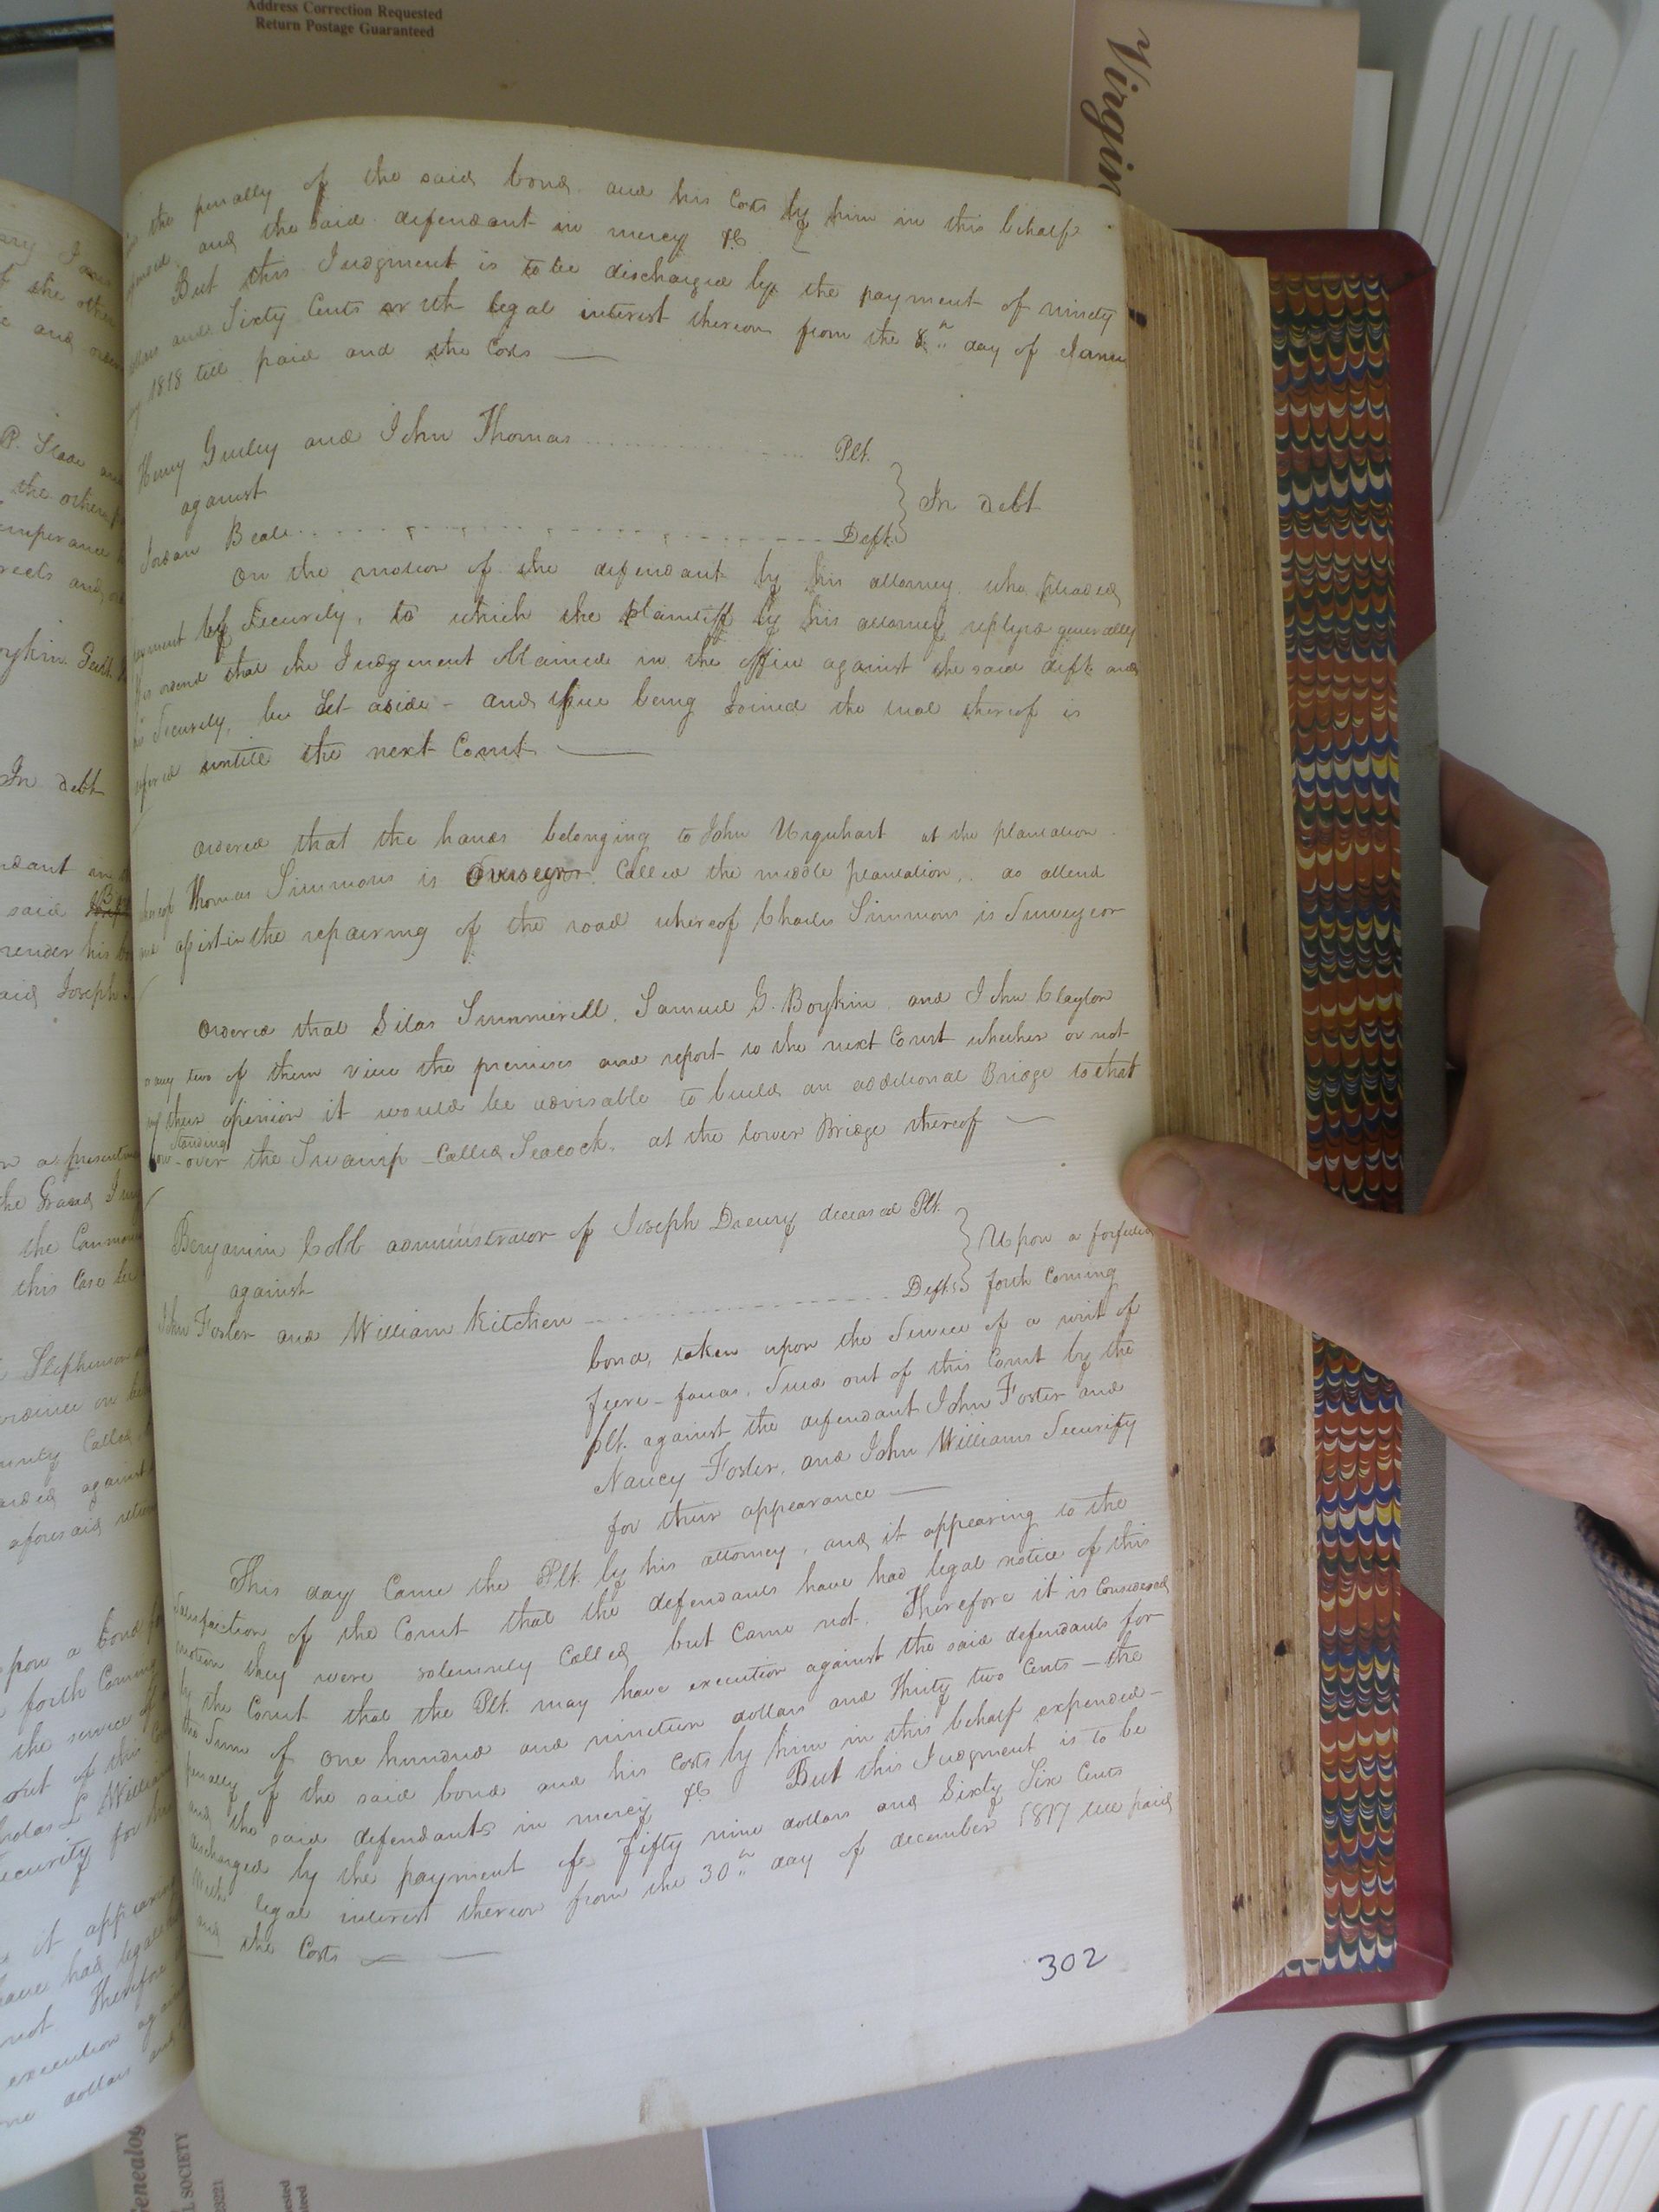 Address Correction Requested
Return Postage Guaranteed
Virgin
the penalty of the said bond and his Costs by him in this behalf
and the said defendant in mercy &c
But this Judgment is to be discharged by the payment of ninety
and Sixty Cents with legal interest thereon from the 8th day of Janu
1818 till paid and the Costs
Henry Gurley and John Thomas Plt.
against
In debt
Jordan Beale Deft.
On the motion of the defendant by his attorney who pleaded
payment by Security, to which the plaintiff by his attorney replyed generally
ordered that the Judgment obtained in the office against the said deft. and
his Security, be Set aside - and issue being Joined the trial thereof is
untill the next Court
Ordered that the hands belonging to John Urquhart at the plantation
whereof Thomas Simmons is Overseer, Called the middle plantation, do attend
and assist in the repairing of the road whereof Charles Simmons is Surveyeor
Ordered that Silas Summerell, Samuel G. Boykin, and John Clayton
or any two of them view the premises and report to the next Court whether or not
in their opinion it would be advisable to build an additional Bridge to that
standing
now over the Swamp Called Seacock, at the lower Bridge thereof
Benjamin Cobb administrator of Joseph Drewry deceased Plt.
Upon a forfeited
against
forth Coming
John Foster and William Kitchen Defts
bond, taken upon the Service of a writ of
fiere-facias, Sued out of this Court by the
plt. against the defendant John Foster and
Nancy Foster, and John Williams Security
for their appearance
This day Came the Plt. by his attorney, and it appearing to the
Satisfaction of the Court that the defendants have had legal notice of this
motion they were solemnly Called but Came not. Therefore it is Considered
by the Court that the Plt. may have execution against the said defendants for
the Sum of One hundred and nineteen dollars and Thirty two Cents - the
penalty of the said bond and his Costs by him in this behalf expended -
and the said defendants in mercy &c But this Judgment is to be
discharged by the payment of Fifty nine dollars and Sixty Six Cents
With legal interest thereon from the 30th day of december 1817 till paid
and the Costs
302
In debt
said
render his
said Joseph
the Grand Jury
this Case be
upon a bond
forth Coming
the service of
out of this
Security for
it appearing
have had legal
not Therefore
execution
dollars and
Genealog
L SOCIETY
23221